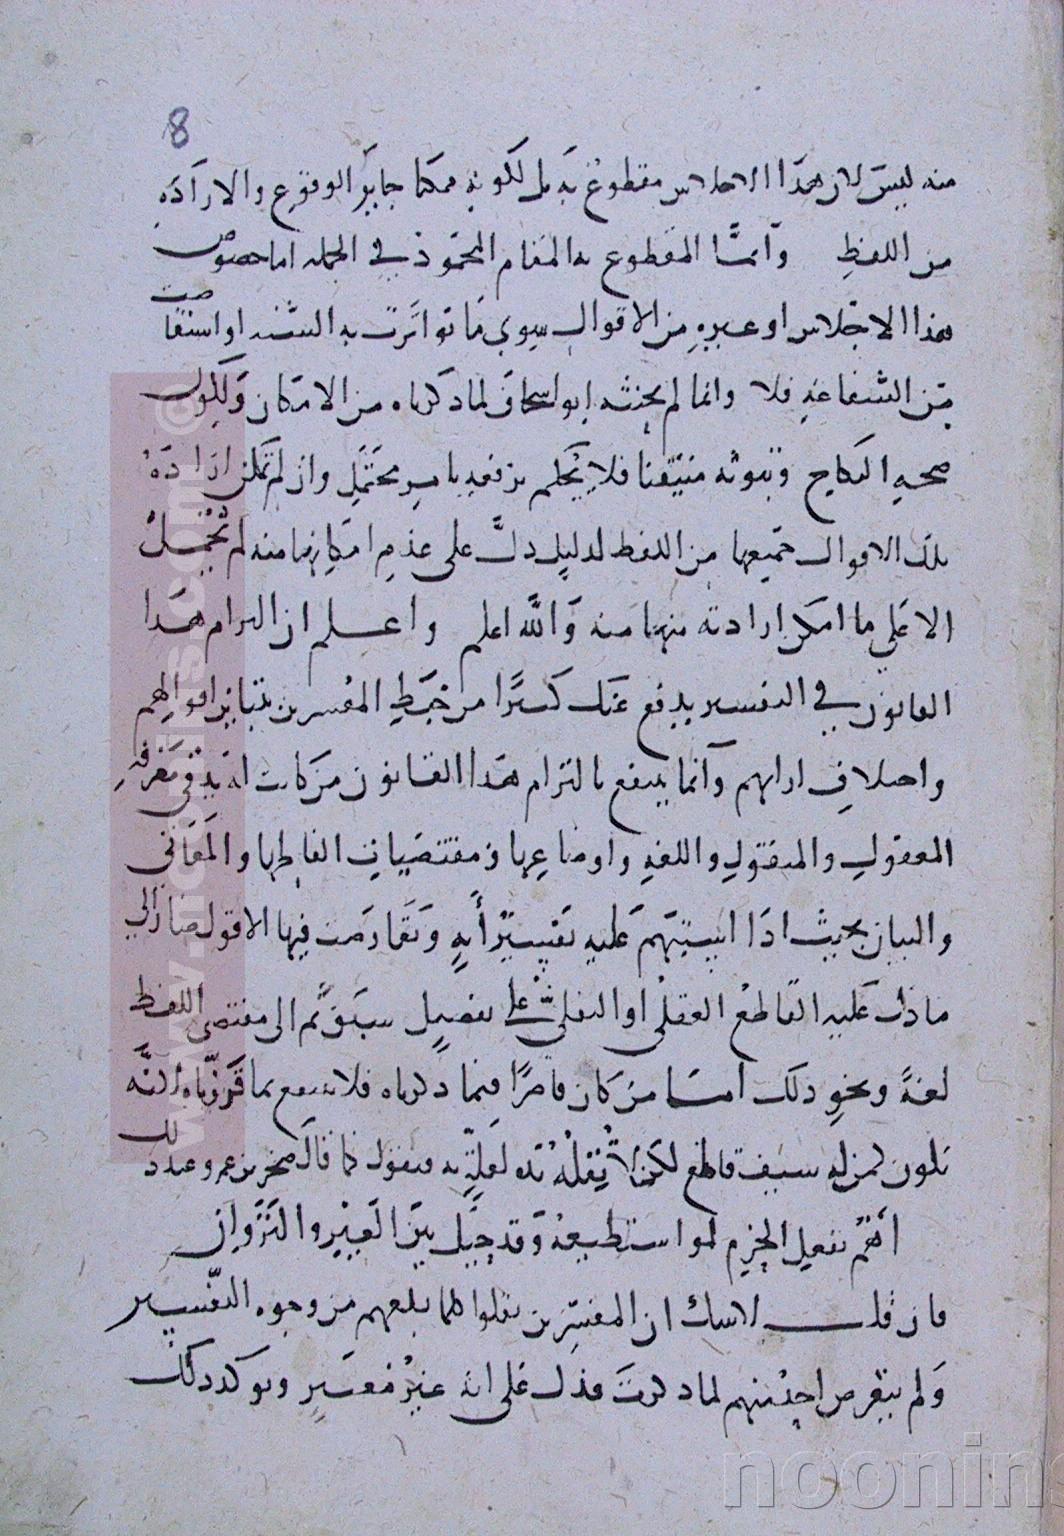 8
منه ليس لان هذا الاجلاس مقطوع به بل لكونه ممكنا جايز الوقوع والارادة
من اللفظ وانما المقطوع به المقام المحمود في الجملة اما خصوص
هذا الاجلاس او غيره من الاقوال سوى ما تواترت به السنة او استفاضت
من الشفاعة فلا وانما لم يحنثه ابو اسحاق لما ذكرناه من الامكان ولكون
صحة النكاح وثبوته متيقنا فلا يحكم برفعه بامر محتمل وان لم تمكن ارادة
تلك الاقوال جميعها من اللفظ لدليل دل على عدم امكانها منه لم تحمل
الا على ما امكن ارادته منها منه والله اعلم واعلم ان التزام هذا
القانون في التفسير يدفع عنك كثيرا من خبط المفسرين بتباين اقوالهم
واختلاف ارائهم وانما ينتفع بالتزام هذا القانون من كانت له يد في معرفة
المعقول والمنقول واللغة واوضاعها ومقتضيات الفاظها والمعاني
والبيان بحيث اذا استبهم عليه تفسير أية وتعارضت فيها الاقوال صار الى
ما دل عليه القاطع العقلي او النقلي على تفصيل سبق ثم الى مقتضى اللفظ
لغة ونحو ذلك امتا من كان قاصرا فيما ذكرناه فلا ينتفع بما قررناه لانه
يكون كمن له سيف قاطع لكن لا يقله يده لعلة به فيقول كما قال صخر بن عمرو عند ذلك
أهم بفعل الحزم لو استطيعه وقد حيل بين العير والنزوان
فان قلت لا شك ان المفسرين نقلوا كلما بلغهم من وجوه التفسير
ولم يتعرض احد منهم لما ذكرت فدل على انه غير معتبر ويوكد ذلك
www.
.com
©
noonins